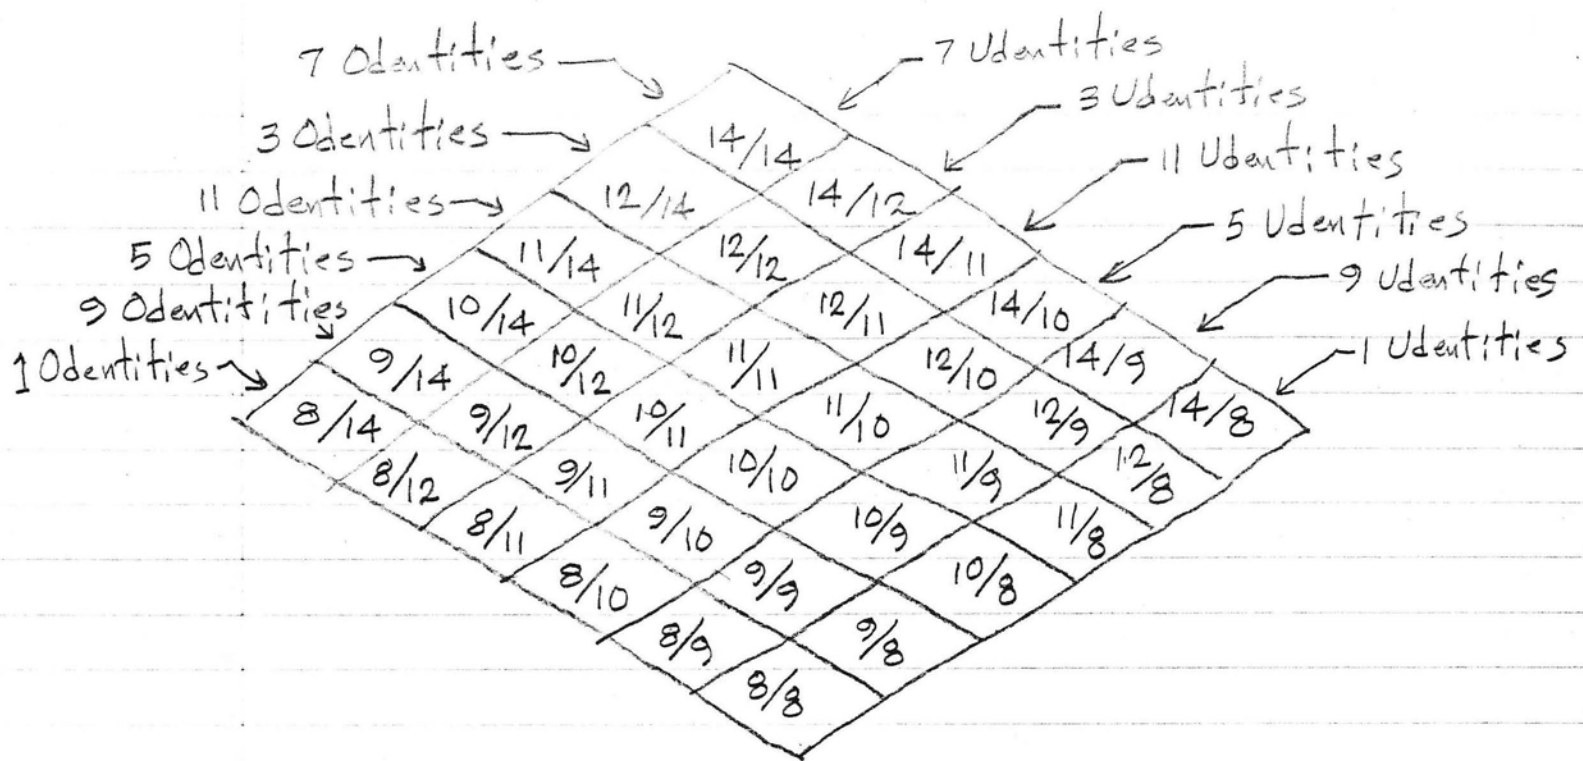 7 Odentities
3 Odentities
11 Odentities
5 Odentities
9 Odentitities
1 Odentities
7 Udentities
3 Udentities
11 Udentities
5 Udentities
9 Udentities
1 Udentities
14/14
12/14 14/12
11/14 12/12 14/11
10/14 11/12 12/11 14/10
9/14 10/12 11/11 12/10 14/9
8/14 9/12 10/11 11/10 12/9 14/8
8/12 9/11 10/10 11/9 12/8
8/11 9/10 10/9 11/8
8/10 9/9 10/8
8/9 9/8
8/8